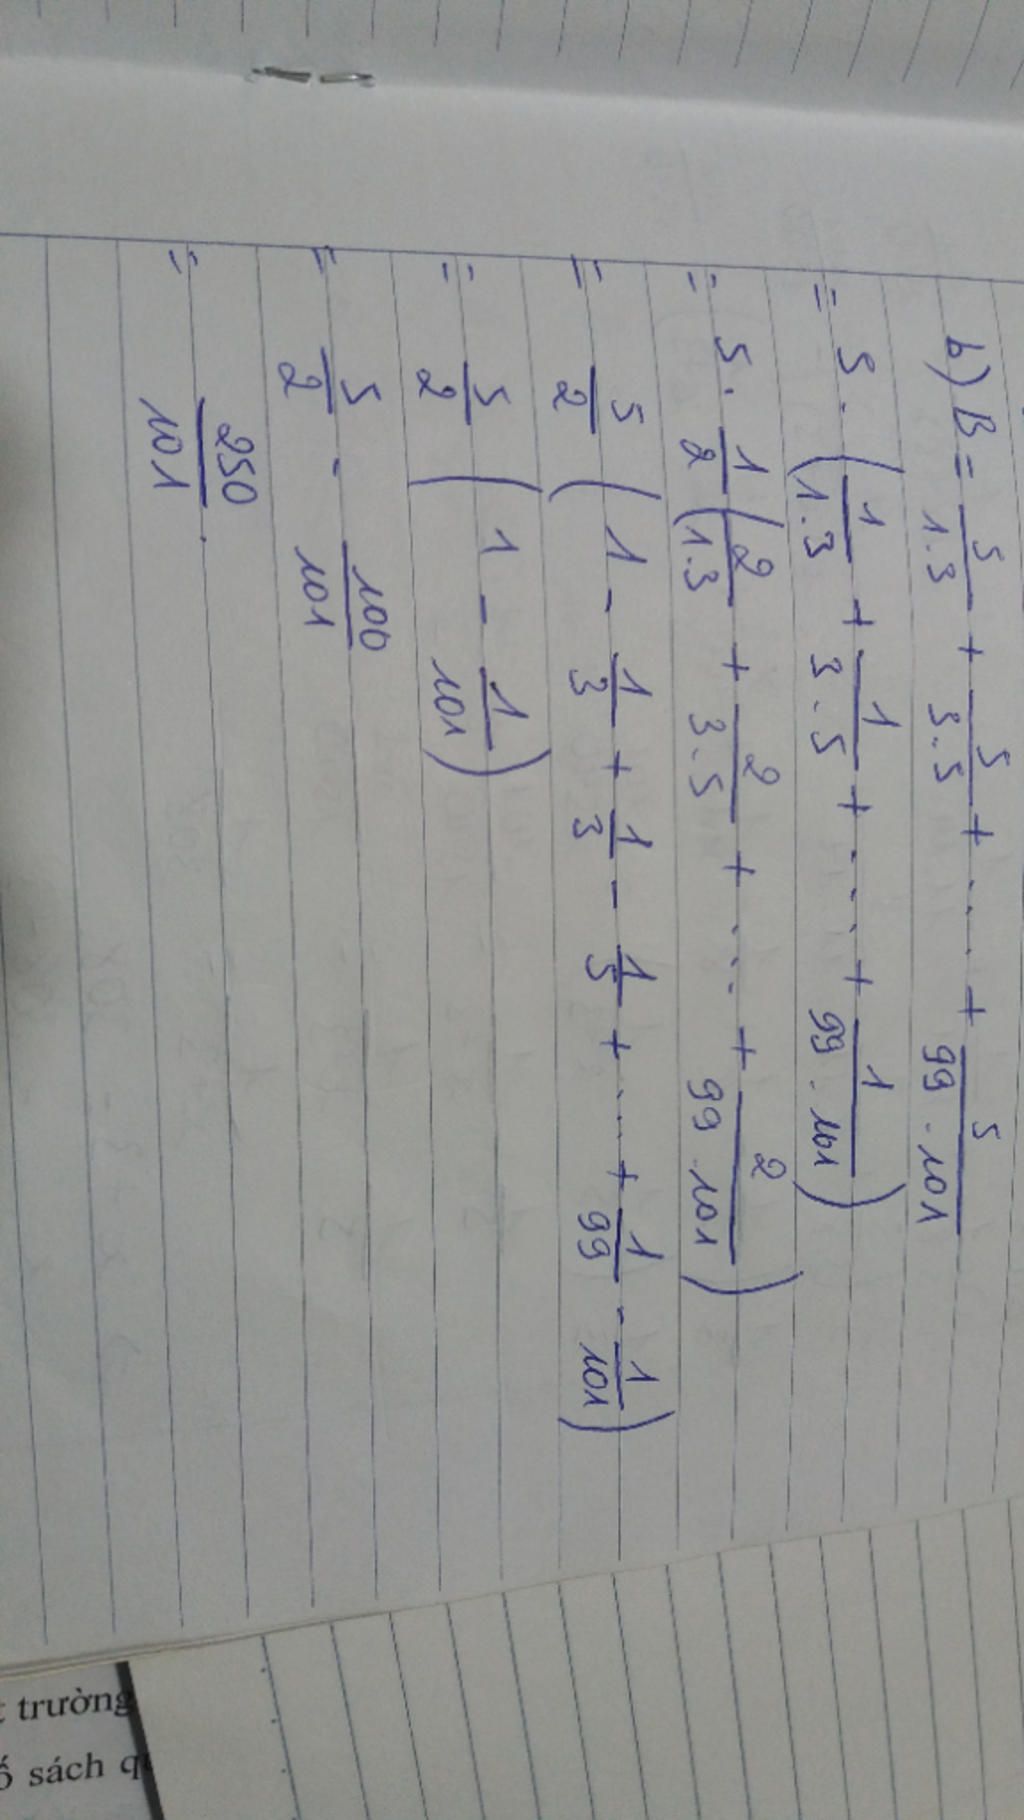 b) B = 5/1.3 + 5/3.5 + .... + 5/99.101
= 5.(1/1.3 + 1/3.5 + .... + 1/99.101)
= 5.1/2(2/1.3 + 2/3.5 + .... + 2/99.101)
= 5/2(1 - 1/3 + 1/3 - 1/5 + .... + 1/99 - 1/101)
= 5/2(1 - 1/101)
= 5/2 . 100/101
= 250/101.
trường
sách